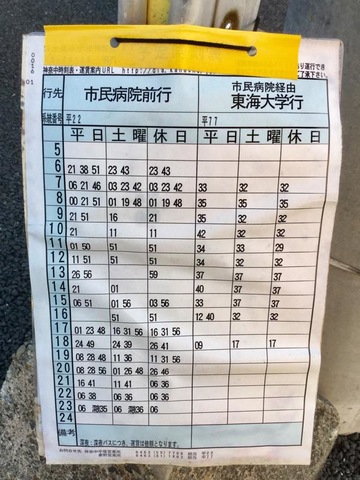 0016 01
神奈中時刻表・運賃案内URL
行先 市民病院前行 市民病院経由 東海大学行
系統番号 平22 平77
平日 土曜 休日 平日 土曜 休日
5
6 21 38 51 23 43 23 43
7 06 21 46 03 23 42 03 23 42 33 32 32
8 00 21 51 01 19 48 01 19 48 35 32 32
9 21 51 16 21 35 32 32
10 21 11 11 42 32 32
11 01 50 51 51 34 33 29
12 11 51 51 51 34 37 37
13 26 56 59 37 37 37
14 21 01 40 37 37
15 06 51 01 56 03 56 34 37 37
16 51 51 12 40 32 32
17 01 23 48 16 31 56 16 31 56
18 24 49 24 49 26 41 09 17 17
19 08 28 48 11 36 11 31 56
20 08 28 56 01 26 48 06 26
21 16 41 11 41 06 36
22 06 38 08 38 06 36
23 06 深35 06 深36 06
24
備考
深夜：深夜バスにつき、運賃は倍額となります。